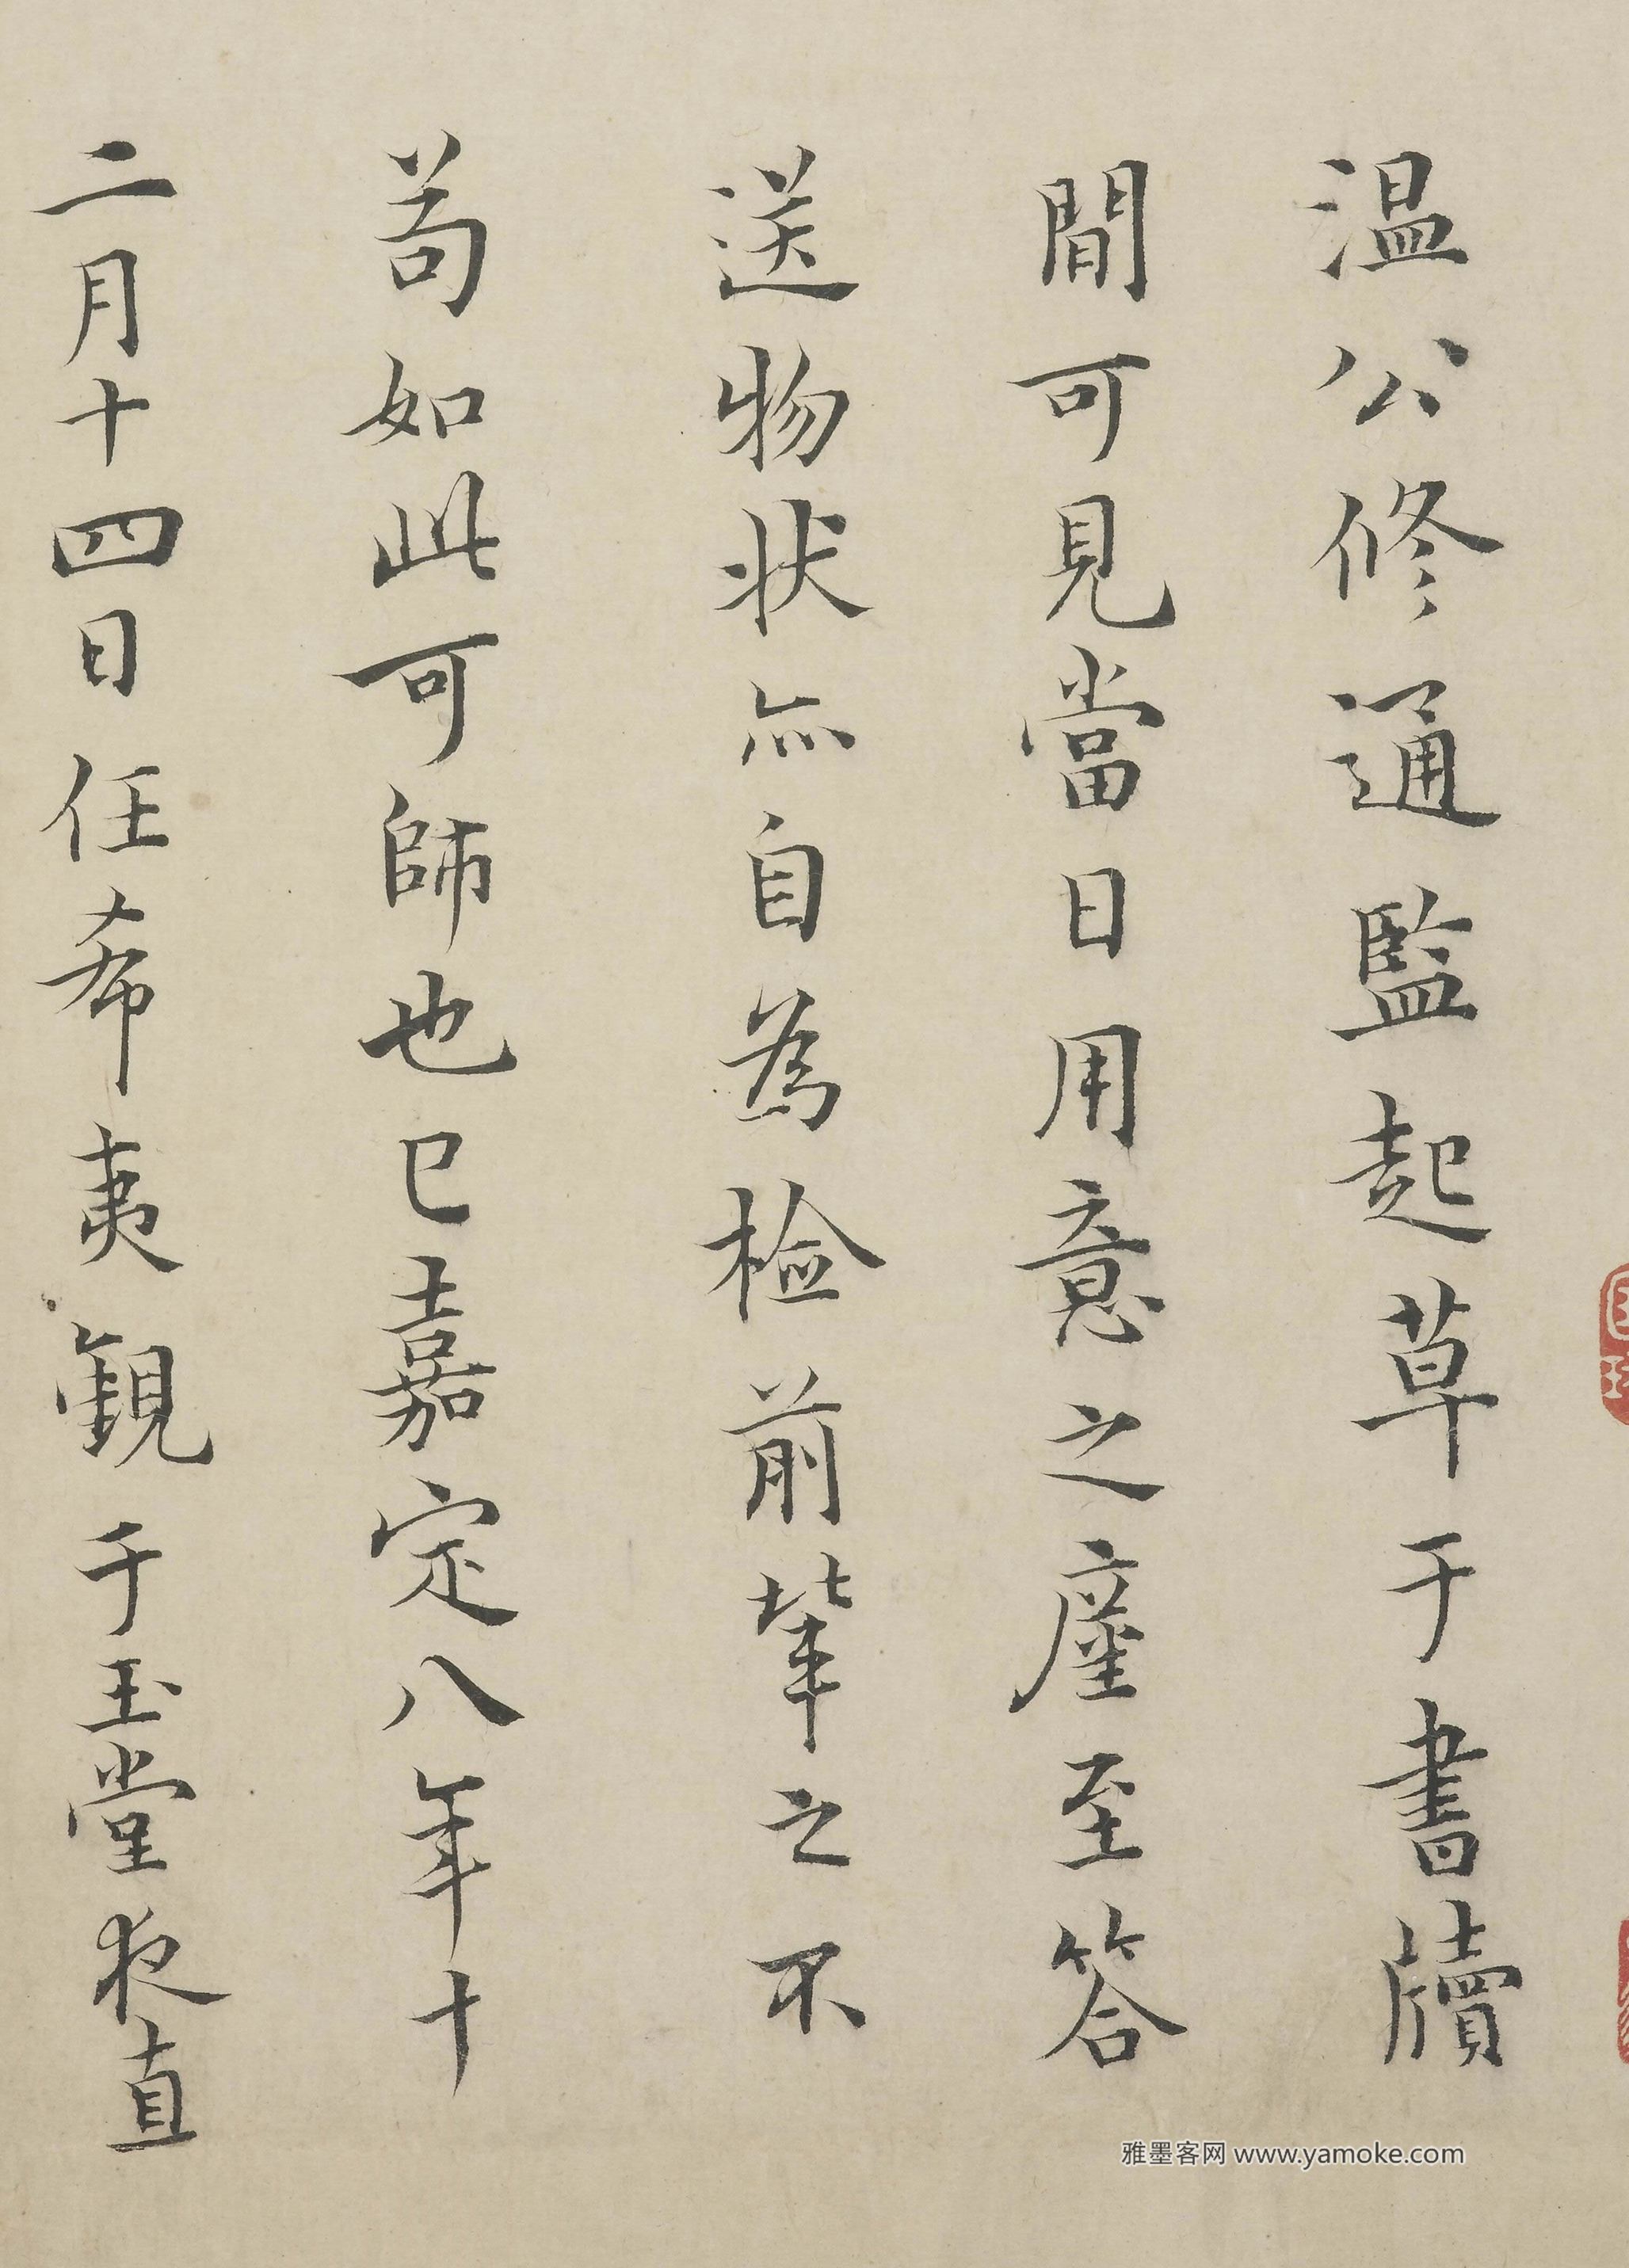 温公修通監起草于書牘
間可見當日用意之廑至答
送物状亦自為檢前輩之不
苟如此可師也已嘉定八年十
二月十四日任希夷觀于玉堂夜直
雅墨客网 www.yamoke.com